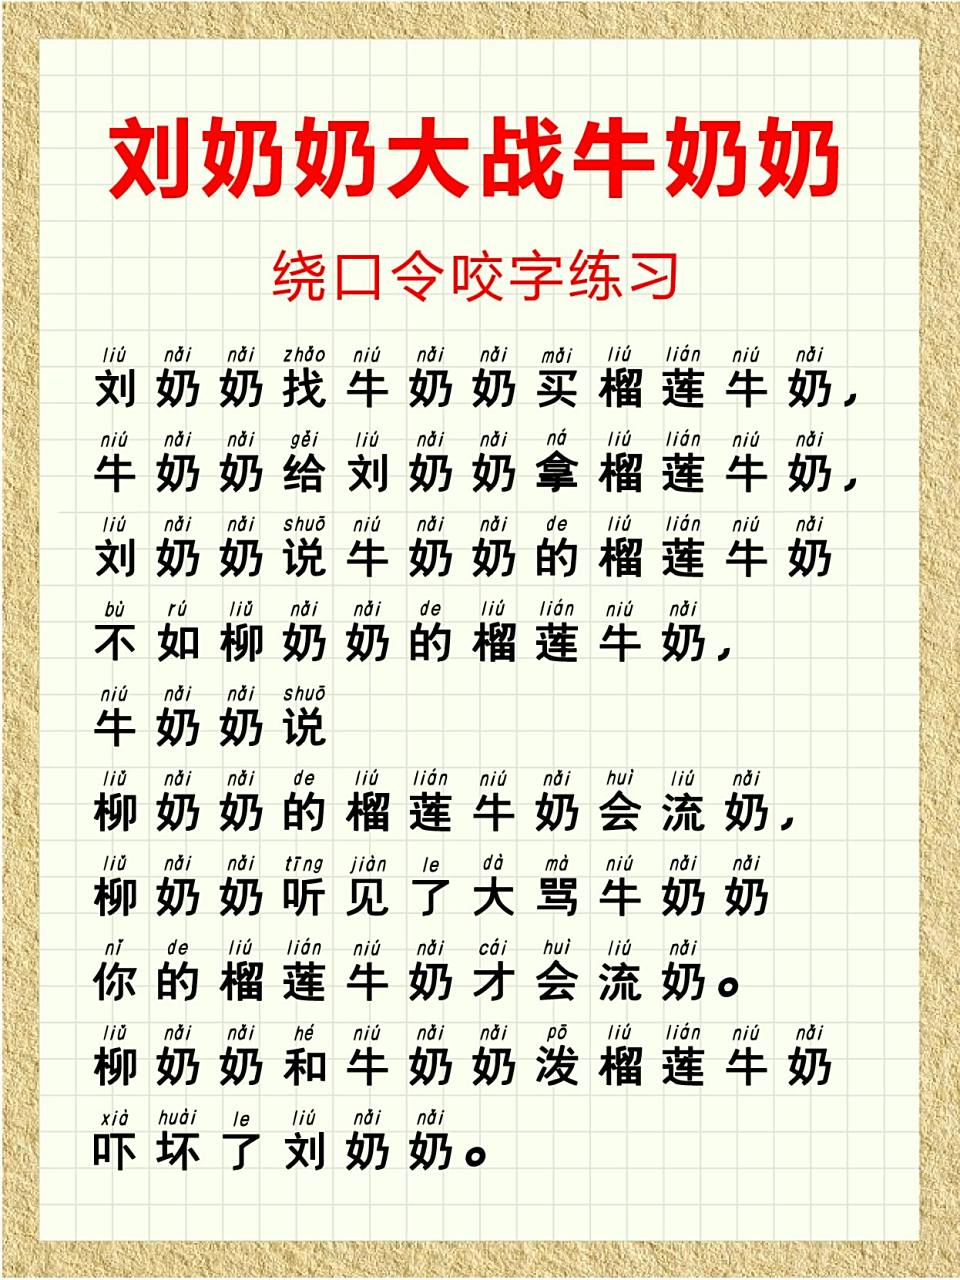 刘奶奶大战牛奶奶
绕口令咬字练习
liú nǎi nǎi zhǎo niú nǎi nǎi mǎi liú lián niú nǎi
刘奶奶找牛奶奶买榴莲牛奶，
niú nǎi nǎi gěi liú nǎi nǎi ná liú lián niú nǎi
牛奶奶给刘奶奶拿榴莲牛奶，
liú nǎi nǎi shuō niú nǎi nǎi de liú lián niú nǎi
刘奶奶说牛奶奶的榴莲牛奶
bù rú liǔ nǎi nǎi de liú lián niú nǎi
不如柳奶奶的榴莲牛奶，
niú nǎi nǎi shuō
牛奶奶说
liǔ nǎi nǎi de liú lián niú nǎi huì liú nǎi
柳奶奶的榴莲牛奶会流奶，
liǔ nǎi nǎi tīng jiàn le dà mà niú nǎi nǎi
柳奶奶听见了大骂牛奶奶
nǐ de liú lián niú nǎi cái huì liú nǎi
你的榴莲牛奶才会流奶。
liǔ nǎi nǎi hé niú nǎi nǎi pō liú lián niú nǎi
柳奶奶和牛奶奶泼榴莲牛奶
xià huài le liú nǎi nǎi
吓坏了刘奶奶。